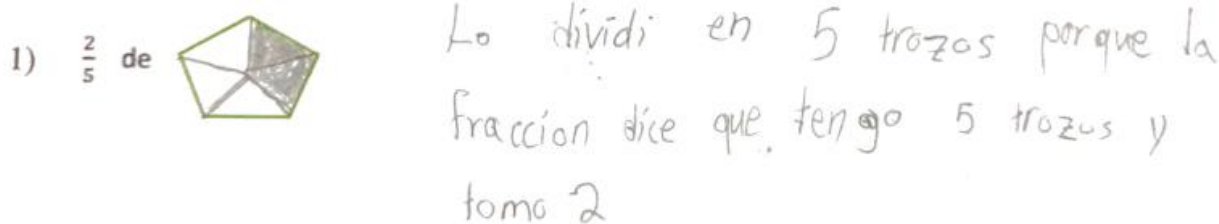 1) 2/5 de Lo dividi en 5 trozos porque la
fraccion dice que. tengo 5 trozos y
tomo 2